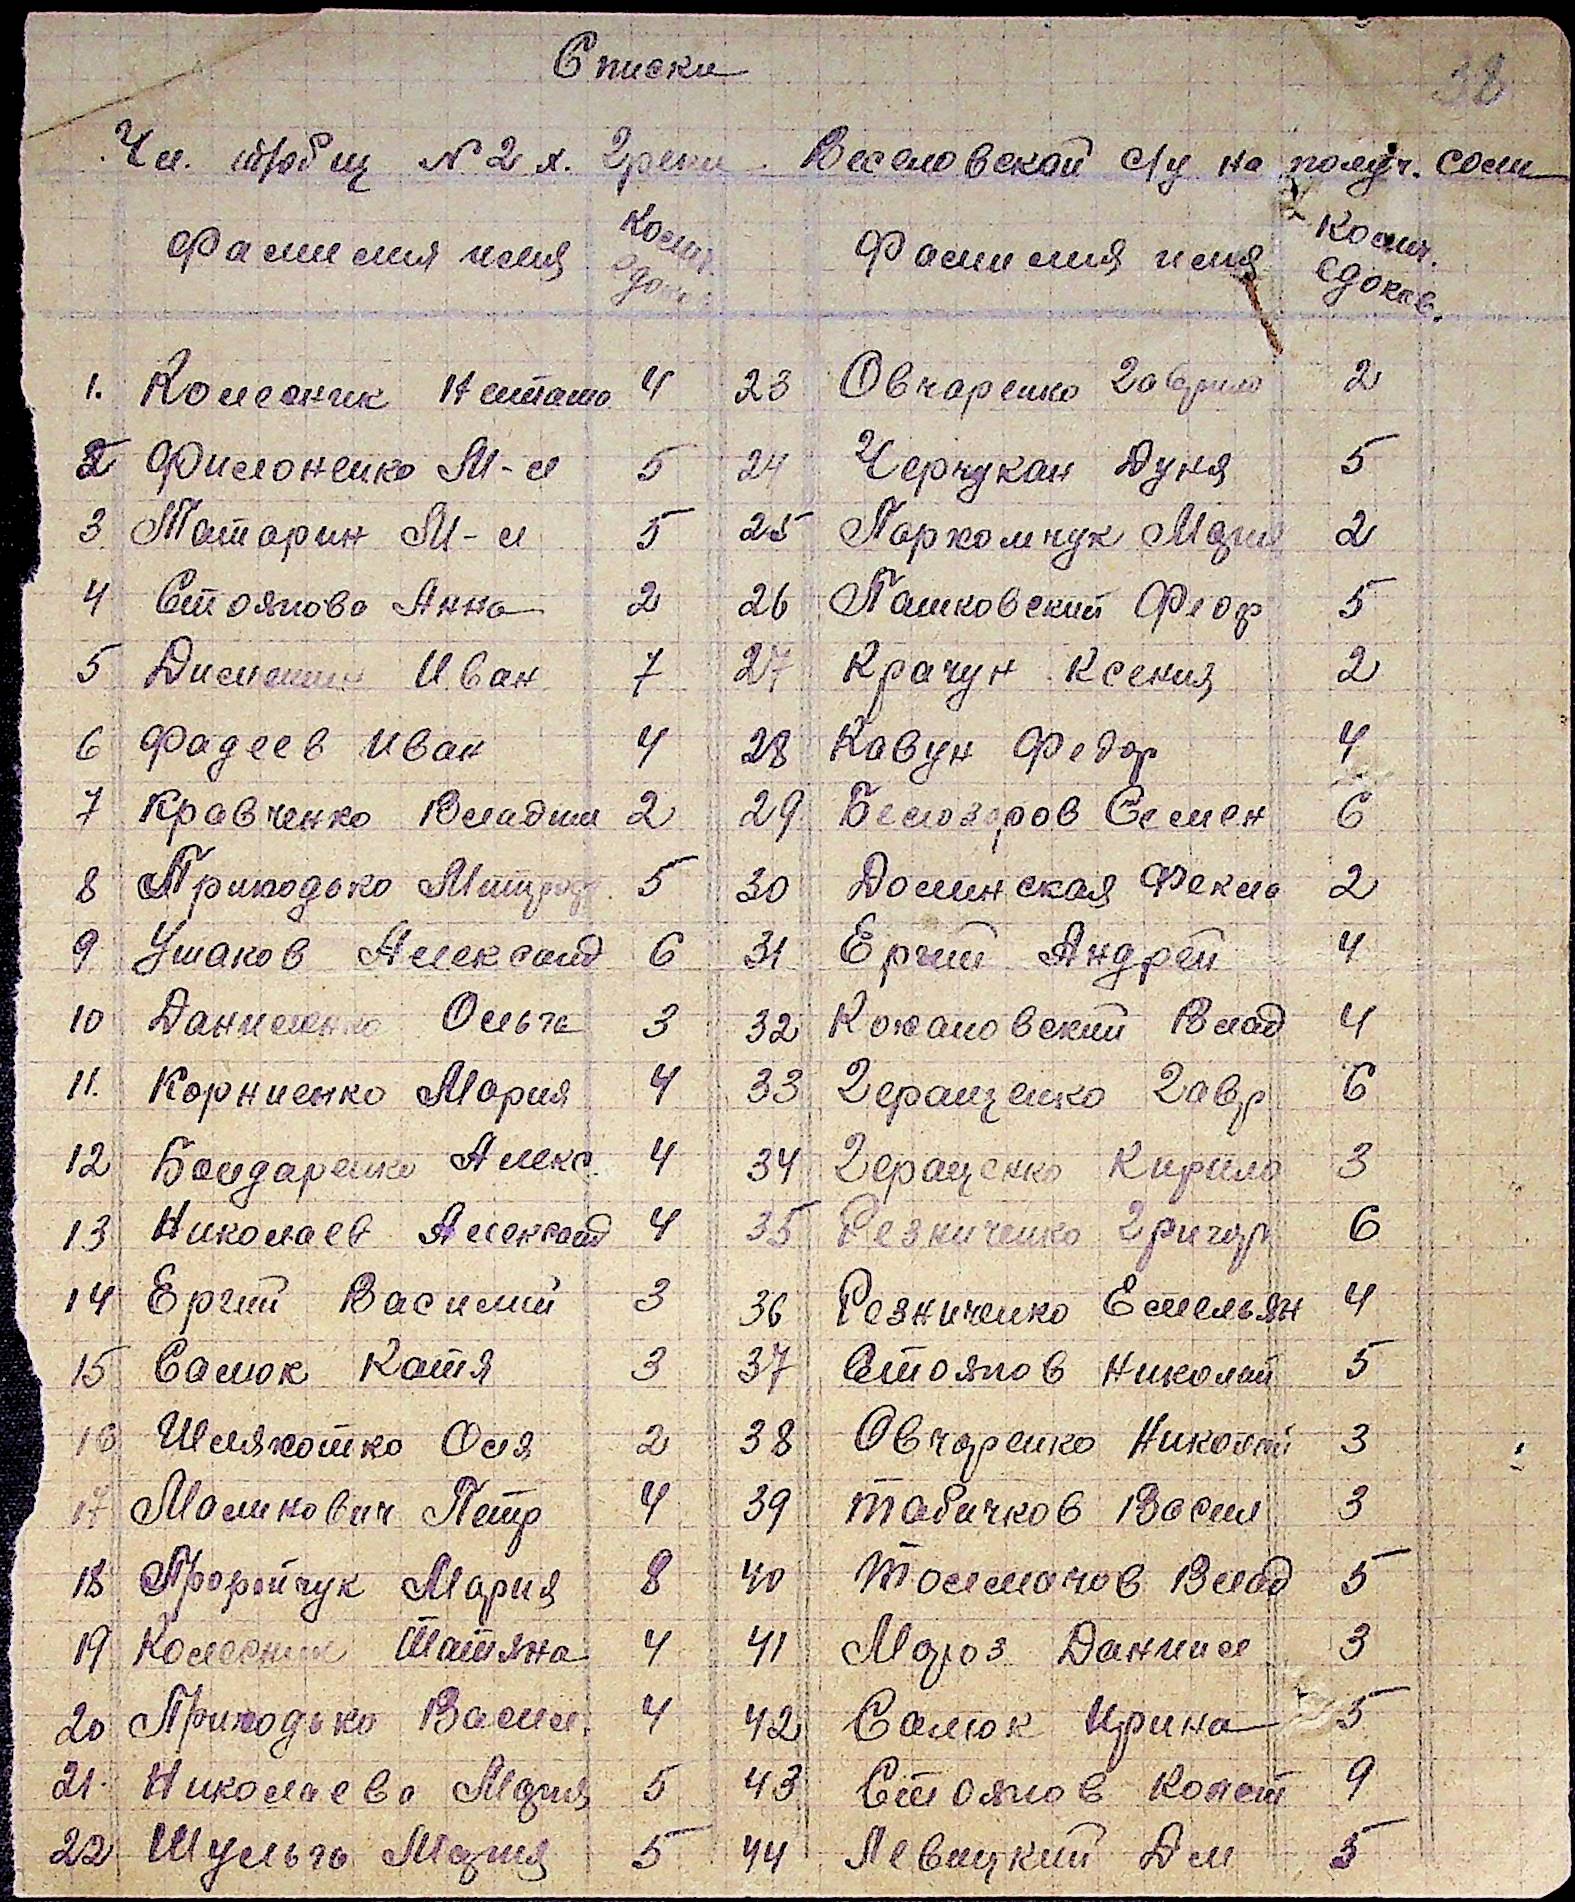 Списки
38
Чл. т/общ N 2 х. Греки Веселовской с/у на получ. соли
Фамилия имя Колич. едоков Фамилия имя Колич. едоков.
1. Колесник Наталя 4 23 Овчаренко Гаврило 2
2 Филоненко М-л 5 24 Черчукан Дуня 5
3 Татарин М-л 5 25 Пархомчук Мария 2
4 Стоянова Анна 2 26 Пашковский Феор 5
5 Иван 7 27 Крачун Ксения 2
6 Фадеев Иван 4 28 Кавун Федор 4
7 Кравченко Владим 2 29 Белозоров Семен 6
8 Приходько Митроф. 5 30 Долинская Фекла 2
9 Ушаков Александ 6 31 Ергий Андрей 4
10 Даниленко Ольга 3 32 Кохановский Влад 4
11. Корниенко Мария 4 33 Геращенко Гавр 6
12 Бондаренко Алекс. 4 34 Геращенко Кирило 3
13 Николаев Александ 4 35 Резниченко Григор 6
14 Ергий Василий 3 36 Резниченко Емельян 4
15 Салюк Катя 3 37 Стоянов Николай 5
16 Шляхотко Оля 2 38 Овчаренко Николай 3
17 Маликович Петр 4 39 Табачков Васил 3
18 Мария 8 40 Толмачов Влад 5
19 Колесник Татяна 4 41 Мороз Данило 3
20 Приходько Васил. 4 42 Салюк Ирина 5
21. Николаева Мария 5 43 Стоянов Конст 9
22 Шульга Мария 5 44 Левицкий Дм 5